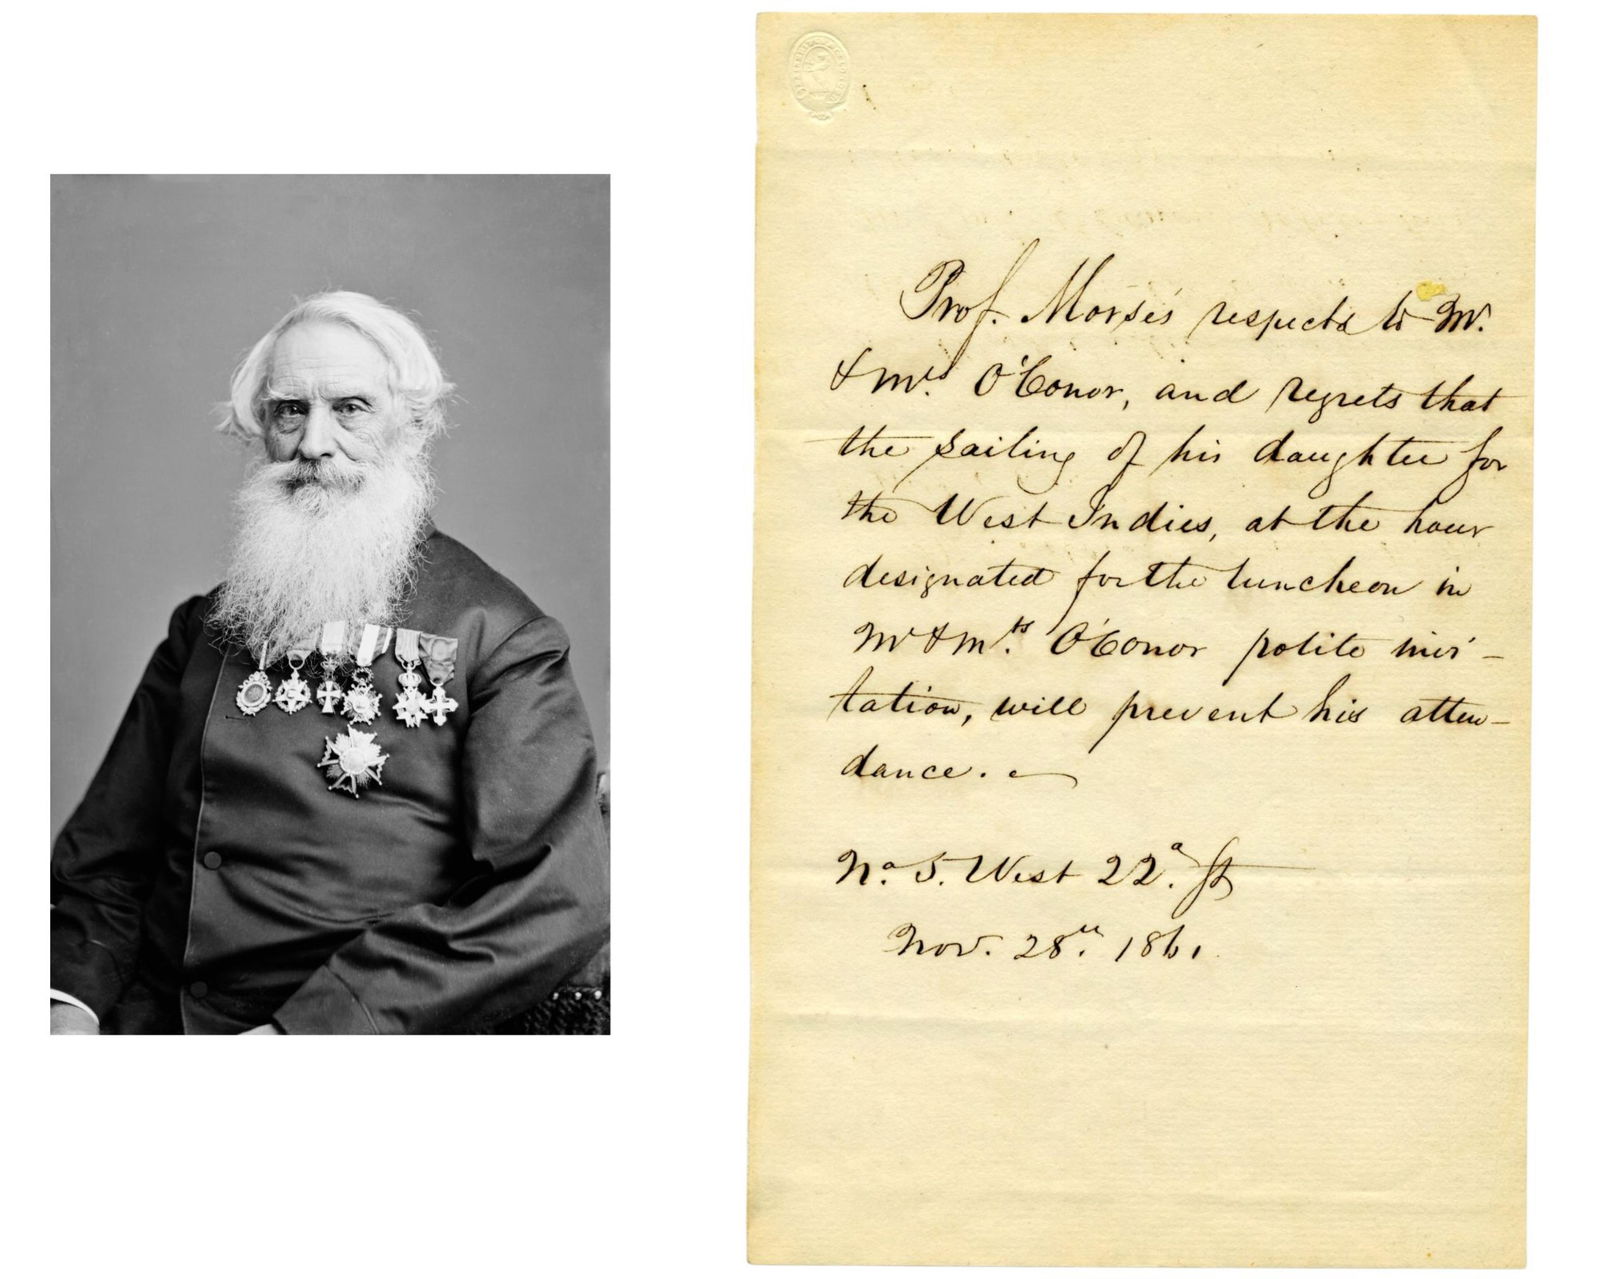 Prof. Morse's respects to Mr.
& Mrs. O'Conor, and regrets that
the sailing of his daughter for
the West Indies, at the hour
designated for the luncheon in
Mr & Mrs. O'Conor polite invi-
tation, will prevent his atten-
dance.
No. 5. West 22d. St
Nov. 28th. 1861.